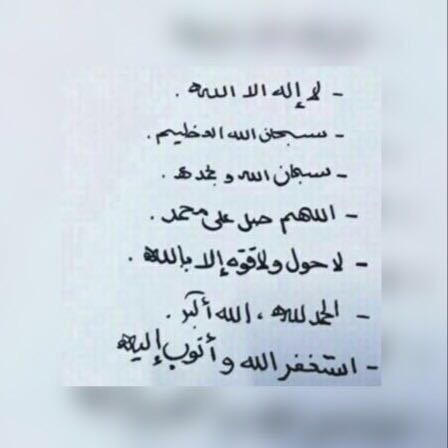 - لا إله الا الله .
- سبحان الله العظيم .
- سبحان الله وبحمده .
- اللهم صل على محمد .
- لا حول ولا قوة إلا بالله .
- الحمدلله ، الله أكبر .
- استغفر الله وأتوب إليه